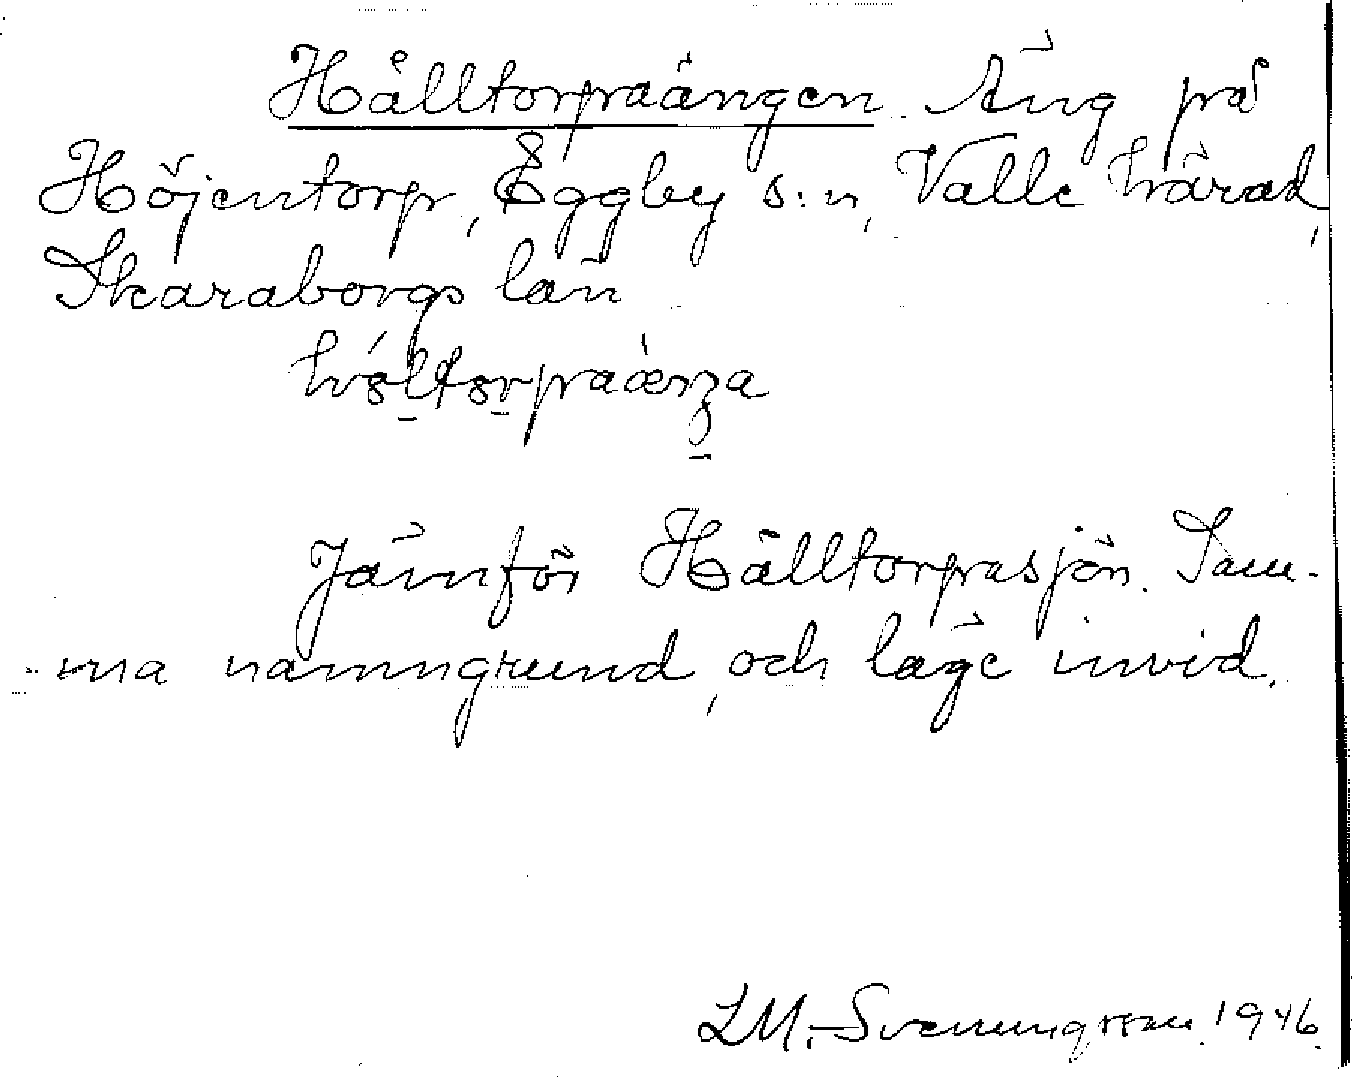 Hålltorpaängen. Äng på
Höjentorp, Eggby s:n, Valle härad,
Skaraborgs län
Jämför Hålltorpasjön. Sam-
ma namngrund, och läge invid.
LM. Svenungsson. 1946.